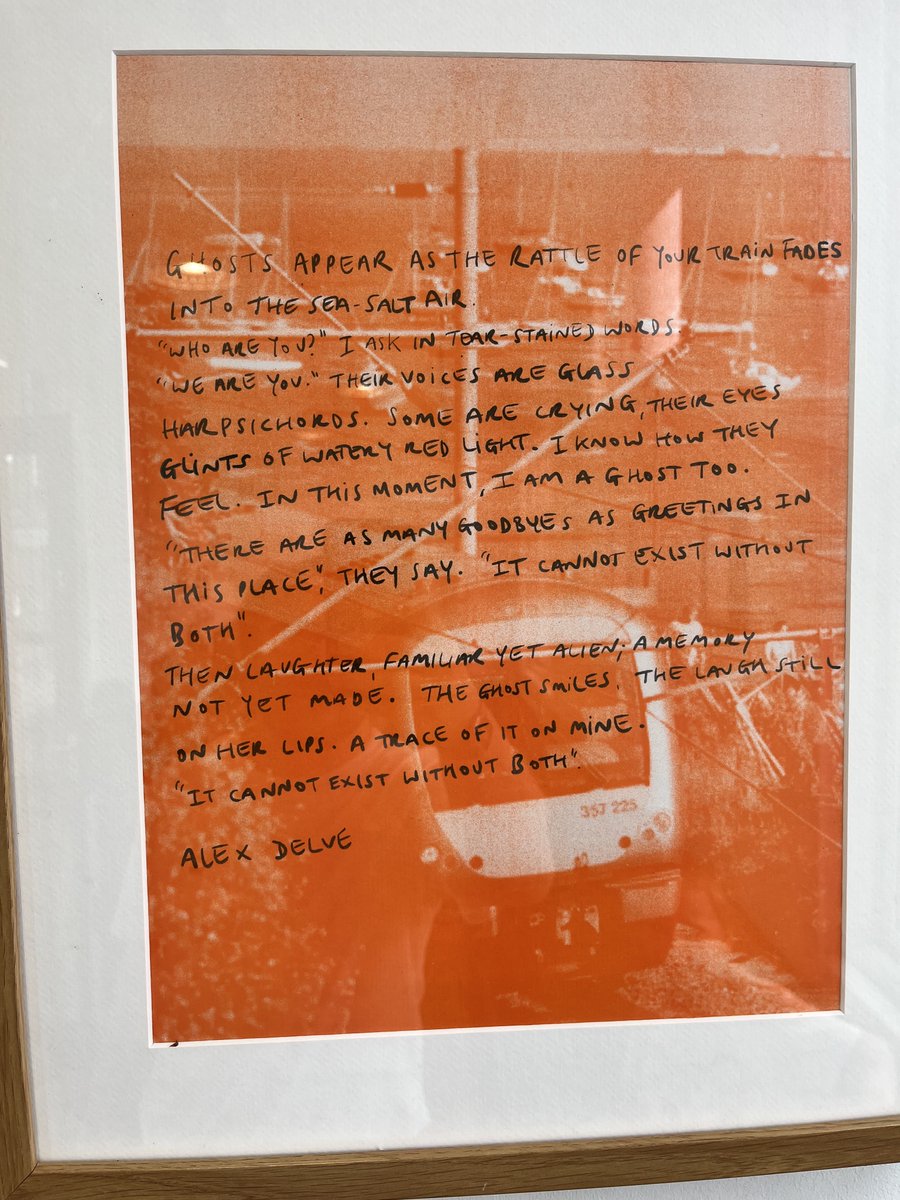 GHOSTS APPEAR AS THE RATTLE OF YOUR TRAIN FADES
INTO THE SEA-SALT AIR.
"WHO ARE YOU?" I ASK IN TEAR-STAINED WORDS.
"WE ARE YOU." THEIR VOICES ARE GLASS
HARPSICHORDS. SOME ARE CRYING, THEIR EYES
GLINTS OF WATERY RED LIGHT. I KNOW HOW THEY
FEEL. IN THIS MOMENT, I AM A GHOST TOO.
"THERE ARE AS MANY GOODBYES AS GREETINGS IN
THIS PLACE", THEY SAY. "IT CANNOT EXIST WITHOUT
BOTH".
THEN LAUGHTER, FAMILIAR YET ALIEN; A MEMORY
NOT YET MADE. THE GHOST SMILES, THE LAUGH STILL
ON HER LIPS. A TRACE OF IT ON MINE.
"IT CANNOT EXIST WITHOUT BOTH".
357 225
ALEX DELVE